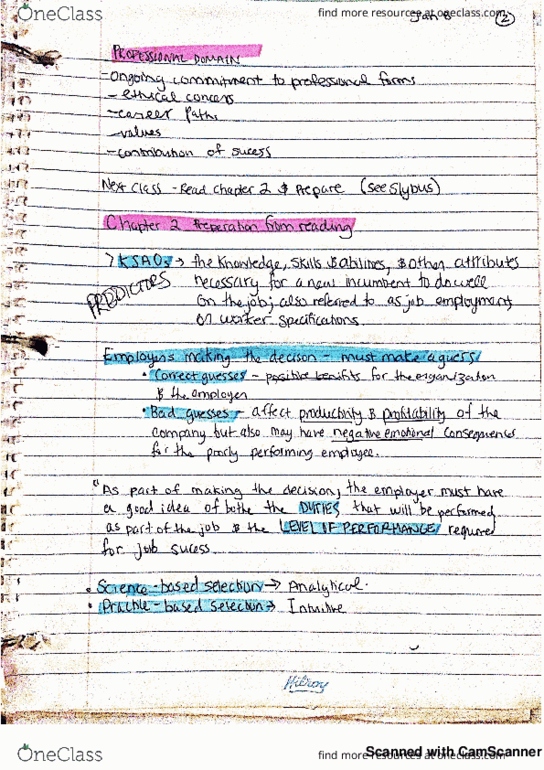 OneClass
find more resources at oneclass.com
2
PROFESSIONAL DOMAIN
-Ongoing commitment to professional forms
- ethical concers
-career Paths
-values
-contribution of sucess
Next Class - Read Chapter 2 & Prepare (see Slybus)
Chapter 2 Preperation from reading
PREDICTORS
> KSAOs → the Knowledge, Skills & abilines, & other attributes
necessary for a new incumbent to do well
on the job; also referred to as job employment
or worker specifications.
Employers making the decison - must make a guess
• Correct guesses - positive benifits for the organization
& the employen
• Bad guesses - affect productivity & profitability of the
company but also may have negative emotional consequences
for the poorly performing employee.
"As part of making the decision, the employer must have
a good idea of bothe the DUTIES that will be performed
as part of the job & the LEVEL OF PERFORMANCE required
for job sucess.
• Science-based selection → Analytical.
• Practice-based selection → Intuitive
Hilroy
OneClass
find more resources at oneclass.com
Scanned with CamScanner